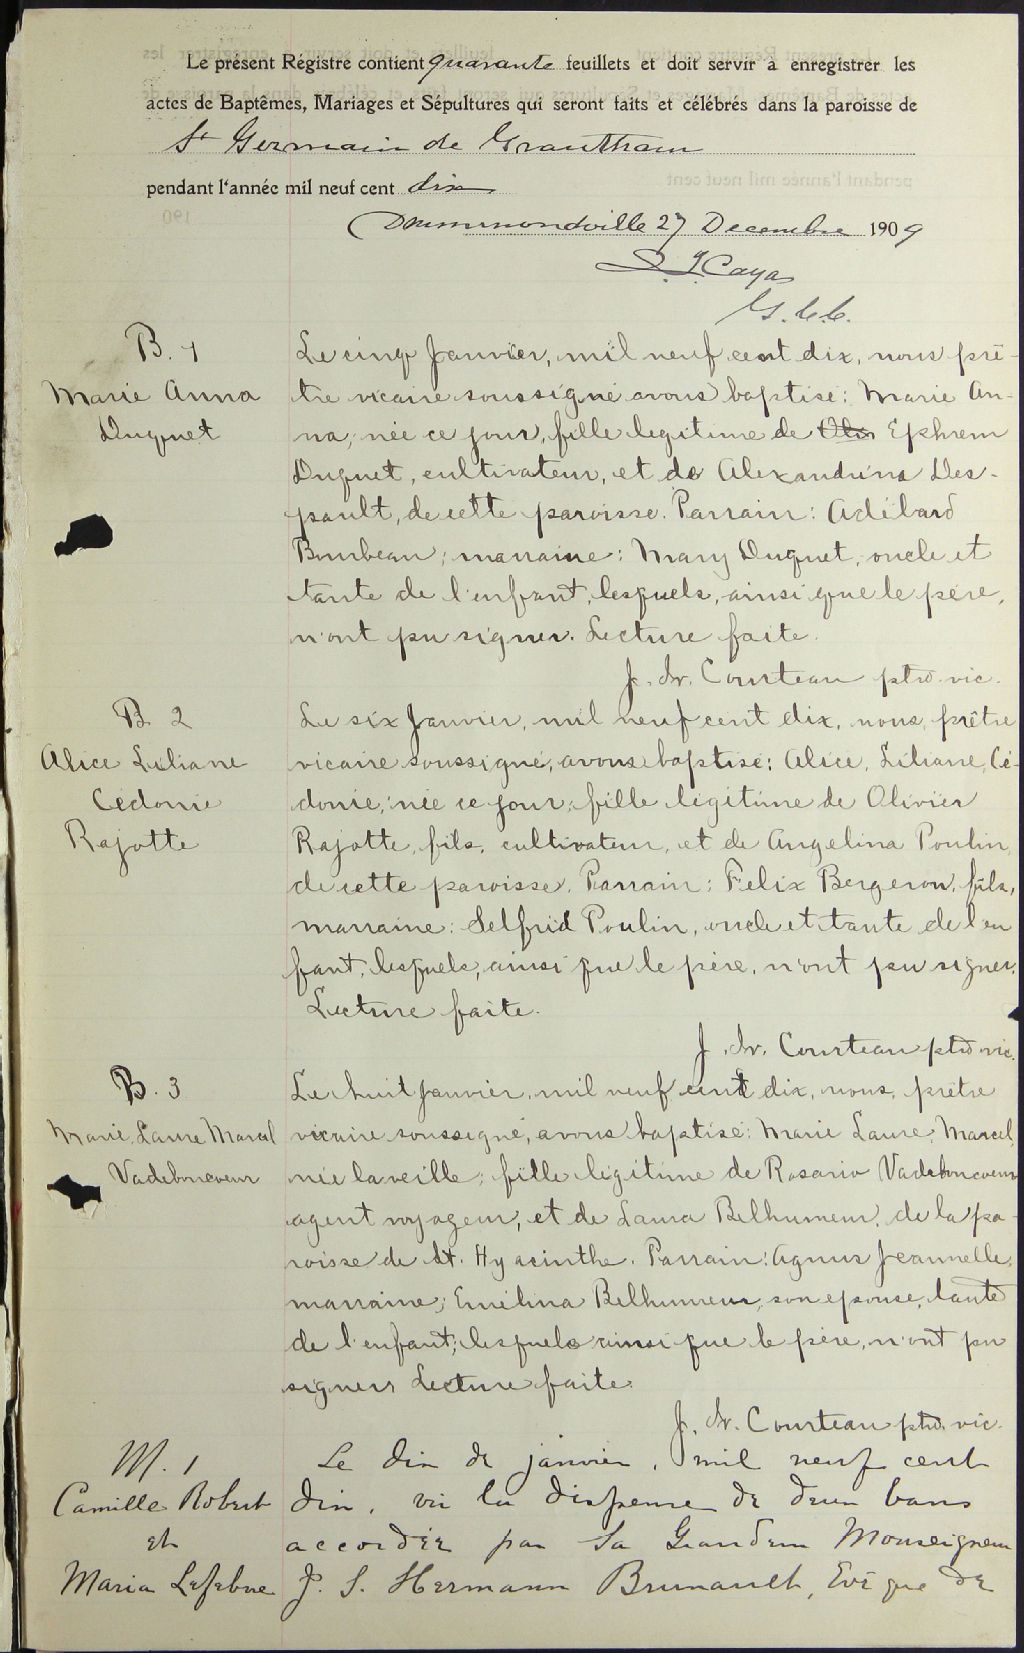 Le présent Régistre contient quarante feuillets et doit servir à enregistrer les
actes de Baptêmes, Mariages et Sépultures qui seront faits et célébrés dans la paroisse de
St Germain de Grantham
pendant l'année mil neuf cent dix
Drummondville 27 Decembre 1909
Cayas
B. 1
Marie Anna
Duguet
Le cinq Janvier, mil neuf cent dix, nous prê-
tre vicaire soussigné avons baptisé: Marie An-
na, née ce jour, fille legitime de Ephrem
Duguet, cultivateur, et de Alexandrina Des-
pault, de cette paroisse. Parrain: Adélard
Bourbeau; marraine: Mary Duguet, oncle et
tante de l'enfant, lesquels, ainsi que le père,
n'ont pu signer. Lecture faite.
J. Courteau ptre vic.
B. 2
Alice Liliane
Cédonie
Rajotte
Le six Janvier, mil neuf cent dix, nous, prêtre
vicaire soussigné, avons baptisé: Alice, Liliane, Cé-
donie, née ce jour, fille légitime de Olivier
Rajotte, fils, cultivateur, et de Angelina Poulin,
de cette paroisse. Parrain: Felix Bergeron, fils,
marraine: Selfrid Poulin, oncle et tante de l'en
fant, lesquels, ainsi que le père, n'ont pu signer.
Lecture faite.
J. Courteau ptre vic.
B. 3
Marie, Laure Marcel
Vadeboncoeur
Le huit Janvier, mil neuf cent dix, nous, prêtre
vicaire soussigné, avons baptisé: Marie Laure, Marcel,
née la veille, fille légitime de Rosario Vadeboncoeur
agent voyageur, et de Laura Belhumeur, de la pa-
roisse de St. Hyacinthe. Parrain: Agnus Jeannelle,
marraine, Emélina Belhumeur, son epouse, tante
de l'enfant; lesquels ainsi que le père, n'ont pu
signer. Lecture faite.
J. Courteau ptre vic.
M. 1
Camille Robert
et
Maria Lefebvre
Le dix de janvier, mil neuf cent
dix, vu la dispense de deux bans
accordée par Sa Grandeur Monseigneur
J. S. Hermann Brunault, Evêque de